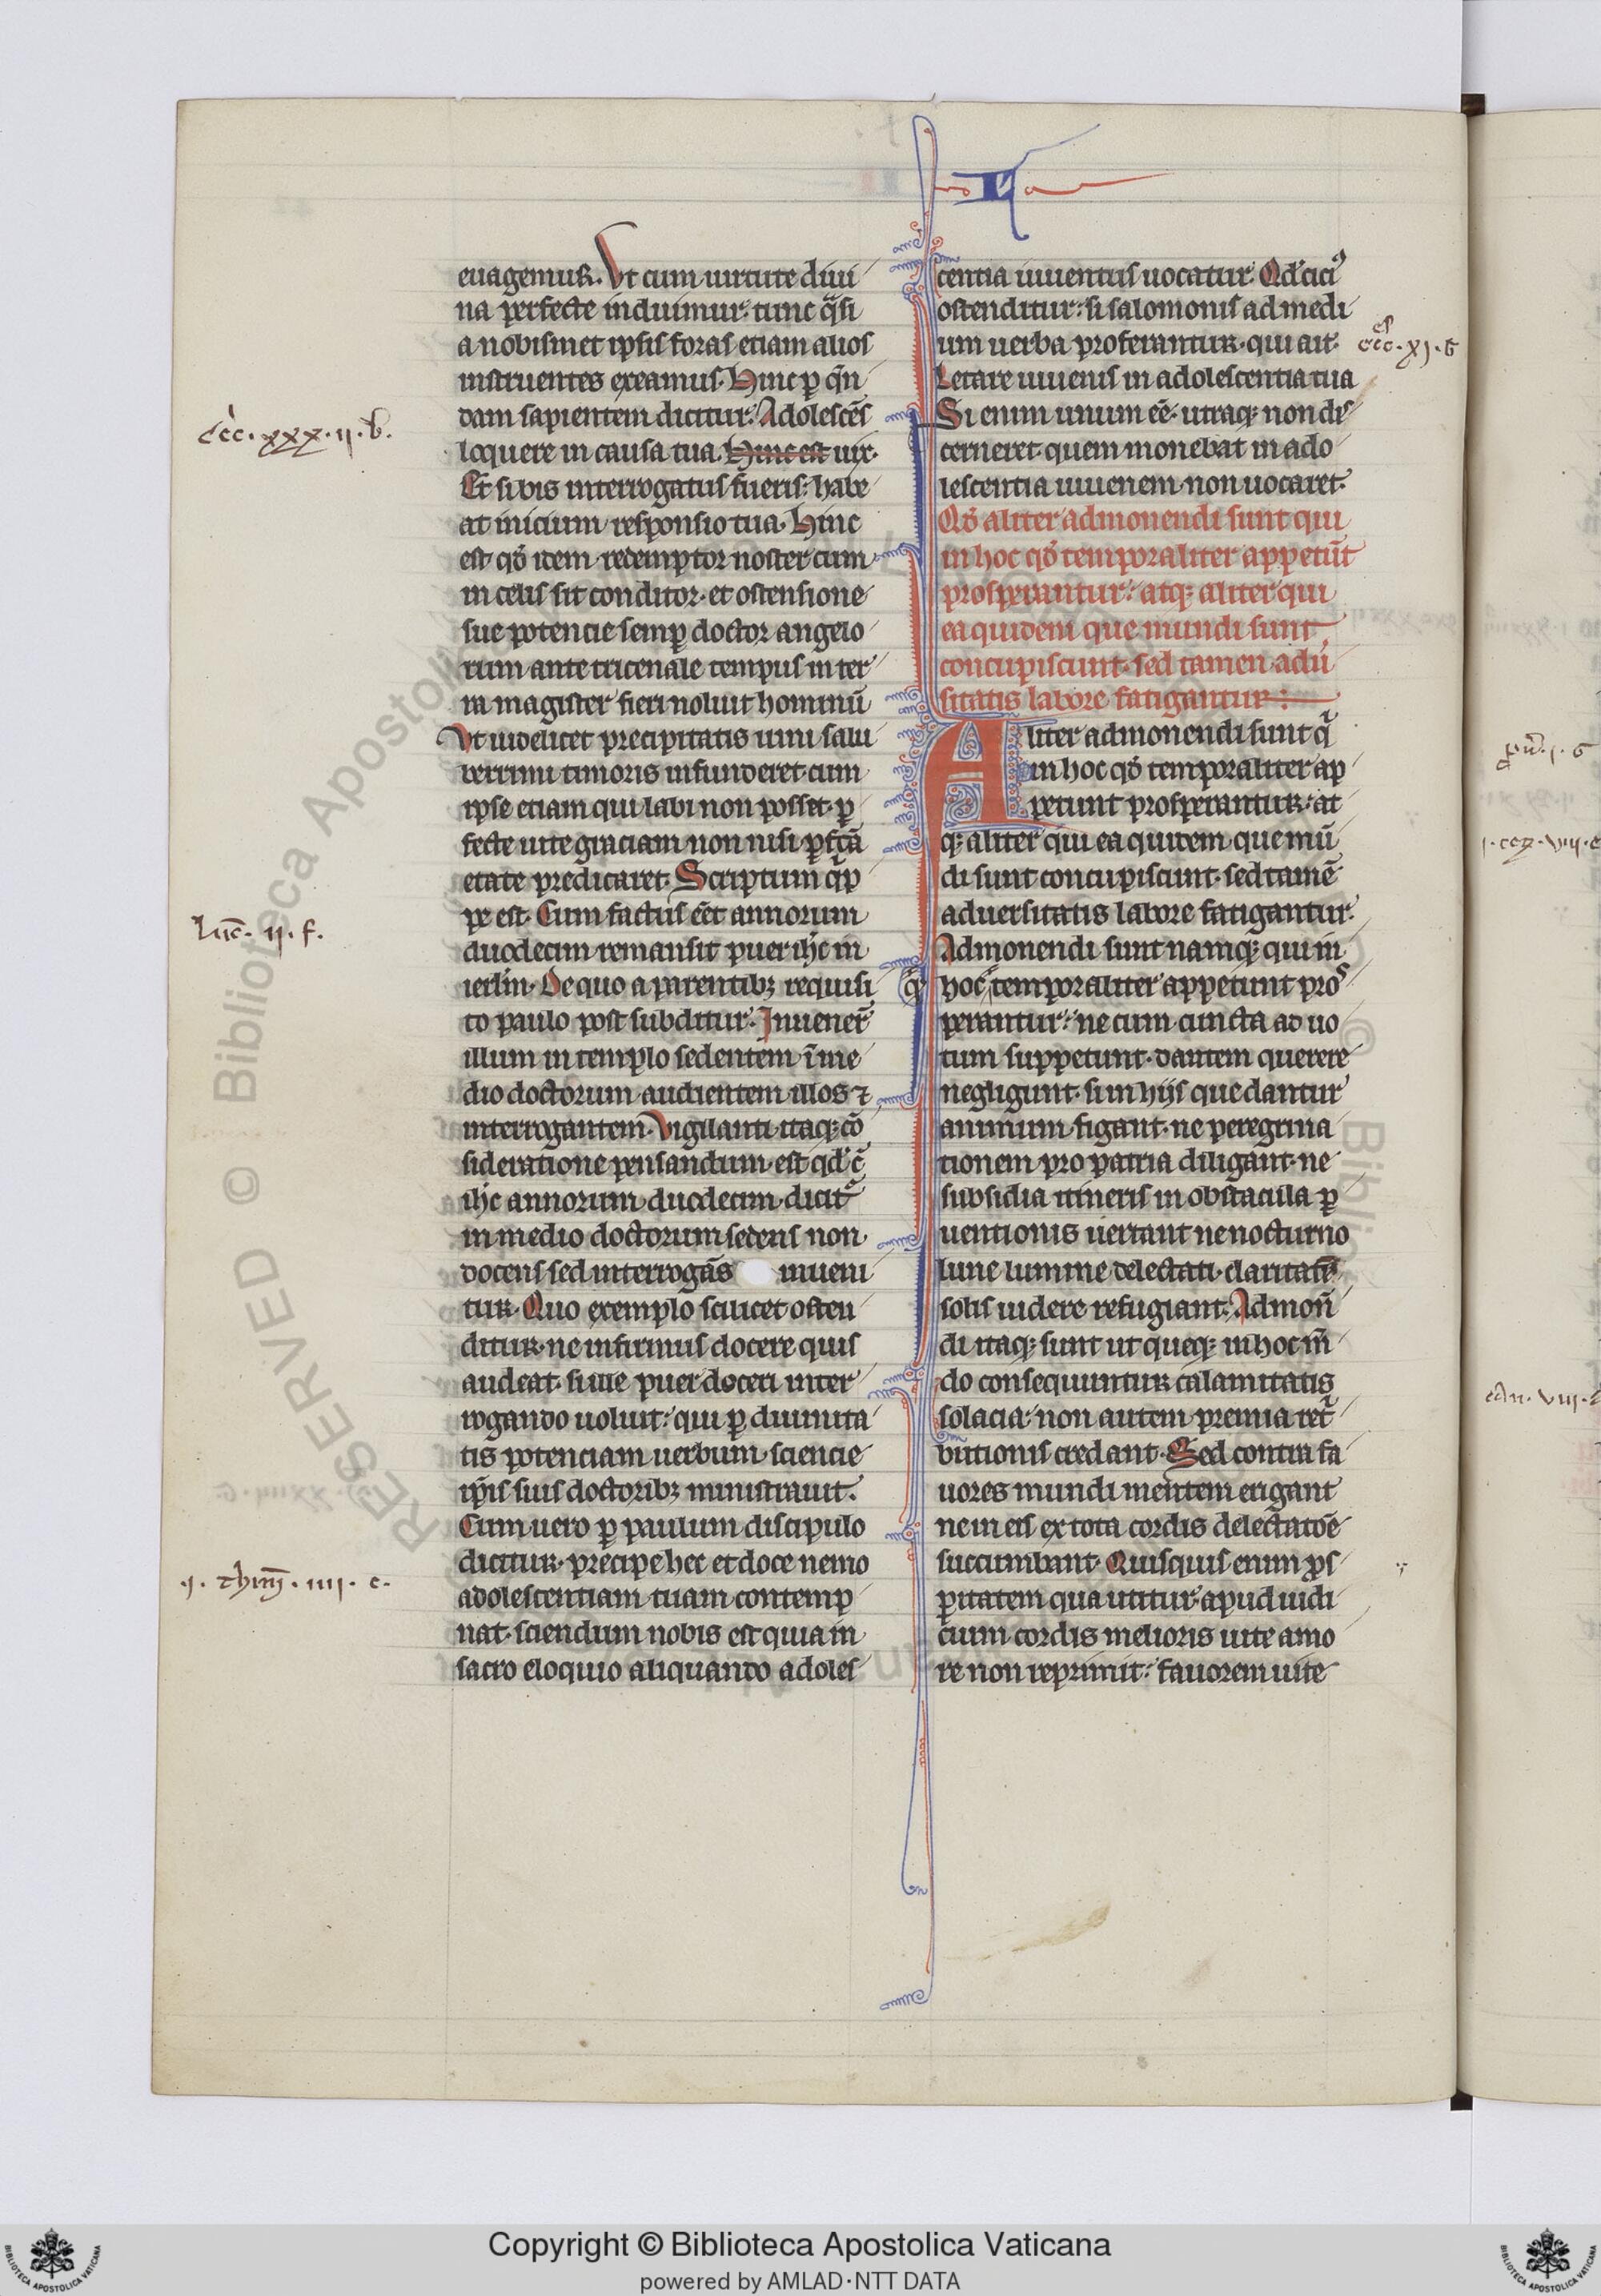 euagemur. Vt cum uirtute diui
na perfecte induimur: tunc q̃si
a nobismet ipsis foras etiam alios
instruentes exeamus. Hinc p̱ q̃n
dam sapientem dicitur. Adolescẽs
loquere in causa tua. Hinc est uix.
Et si bis interrogatus fueris: habe
at inicium responsio tua. Hinc
est qd̕ idem redemptor noster cum
in celis sit conditor. et ostensione
sue potencie semp̱ doctor angelo
rum ante tricenale tempus in ter
ra magister fieri noluit hominũ
Vt uidelicet precipitatis uim salu
berrimi timoris infunderet. cum
ipse etiam qui labi non posset. p̱
fecte uite graciam non nisi p̱fcã
etate predicaret. Scriptum q̃p
pe est. Cum factus eẽt annorum
duodecim remansit puer ihc̄ in
ierl̄m. De quo a parentibꝫ requisi
to paulo post subditur. Inuener̃
illum in templo sedentem ĩ me
dio doctorum audientem illos ⁊
interrogantem. Vigilanti itaqꝫ cõ
sideratione pensandum est qd̕ c̃
ihc̄ annorum duodecim dicit᷑
in medio doctorum sedens non
docens sed interrogãs inueni
tur. Quo exemplo scilicet osten
ditur. ne infirmus docere quis
audeat. si ille puer doceri inter
rogando uoluit: qui p̱ diuinita
tis potenciam uerbum sciencie
ip̃is suis doctoribꝫ ministrauit.
Cum uero p̱ paulum discipulo
dicitur. precipe hec et doce nemo
adolescentiam tuam contemp
nat. sciendum nobis est quia in
sacro eloquio aliquando adoles
centia iuuentus uocatur. Qd̕ cici᷒
ostenditur: si salomonis ad medi
um uerba proferantur. qui ait.
Letare iuuenis in adolescentia tua
Si enim unum eẽ. utraqꝫ non dis
cerneret. quem monebat in ado
lescentia iuuenem non uocaret.
Qd̕ aliter admonendi sunt qui
in hoc qd̕ temporaliter appetũt
prosperantur: atqꝫ aliter qui
ea quidem que mundi sunt
concupiscunt. sed tamen adũ
sitatis labore fatigantur:
Aliter admonendi sunt q̃
in hoc qd̕ temporaliter ap
petunt prosperantur. at
qꝫ aliter qui ea quidem que mũ
di sunt concupiscunt. sed tamẽ
aduersitatis labore fatigantur.
Admonendi sunt namqꝫ qui in
hoc temporaliter appetunt pros
perantur: ne cum cuncta ad uo
tum suppetunt. dantem querere
negligunt. si in hijs que dantur
animum figant. ne peregrina
tionem pro patria diligant. ne
subsidia itineris in obstacula p̱
uentionis uertant ne nocturno
lune lumine delectati. claritatẽ
solis uidere refugiant. Admoñ
di itaqꝫ sunt ut queqꝫ in hoc m̃
do consequuntur calamitatis
solacia: non autem premia ret᷑
butionis credant. Sed contra fa
uores mundi mentem erigant
ne in eis ex tota cordis delectatõe
succumbant. Quisquis enim p̱s
p̱itatem qua utitur. apud iudi
cium cordis melioris uite amo
re non reprimit: fauorem uite
ecc̄. xxx. ii. b.
luc̄. ii. f.
i. thim̄. iiii. c.
ecc̄s. xi. G